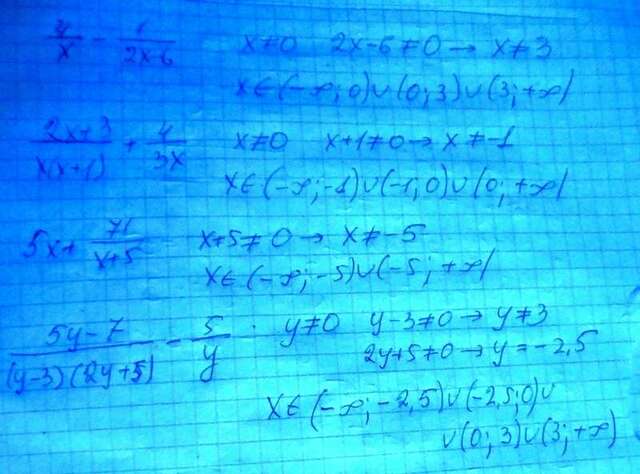 4/x - 1/(2x-6) x≠0 2x-6≠0 → x≠3
x∈(-∞;0)∪(0;3)∪(3;+∞)
(2x+3)/(x(x+1)) + 4/(3x) x≠0 x+1≠0 → x≠-1
x∈(-∞;-1)∪(-1;0)∪(0;+∞)
5x + 71/(x+5) x+5≠0 → x≠-5
x∈(-∞;-5)∪(-5;+∞)
(5y-7)/((y-3)(2y+5)) - 5/y . y≠0 y-3≠0 → y≠3
2y+5≠0 → y=-2,5
x∈(-∞;-2,5)∪(-2,5;0)∪
∪(0;3)∪(3;+∞)